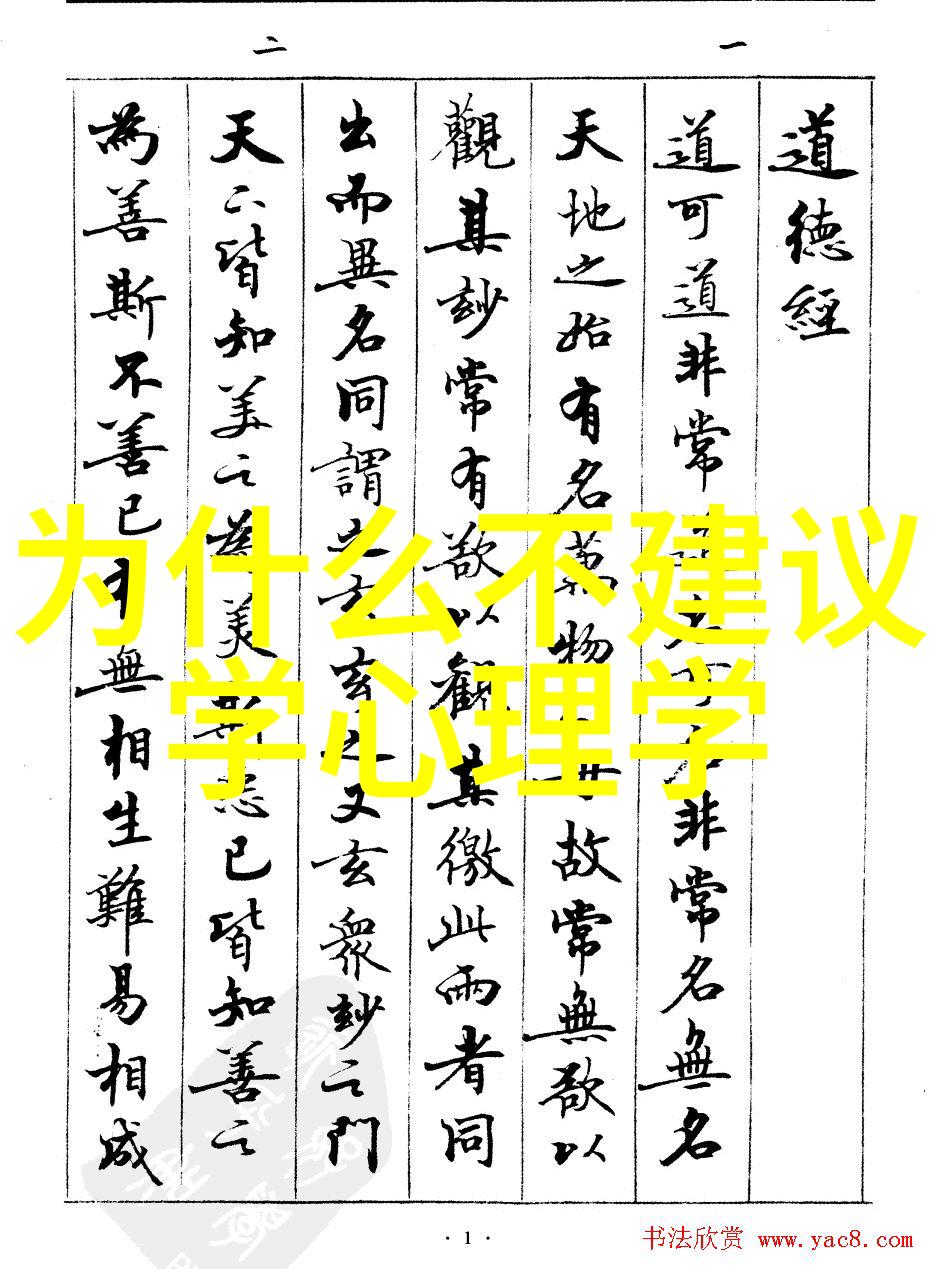 一
二
道德經
道可道非常名非常名無名
天地之始有名萬物母故常無欲以
觀其玅常有欲以觀其徼此兩者同
出而異名同謂之玄玄之又玄眾玅之門
天下皆知美之為美斯惡已皆知善之
為善斯不善已有無相生難易相成
为什么不建议
学心理学
· 1 ·
书法欣赏 www.yac8.com